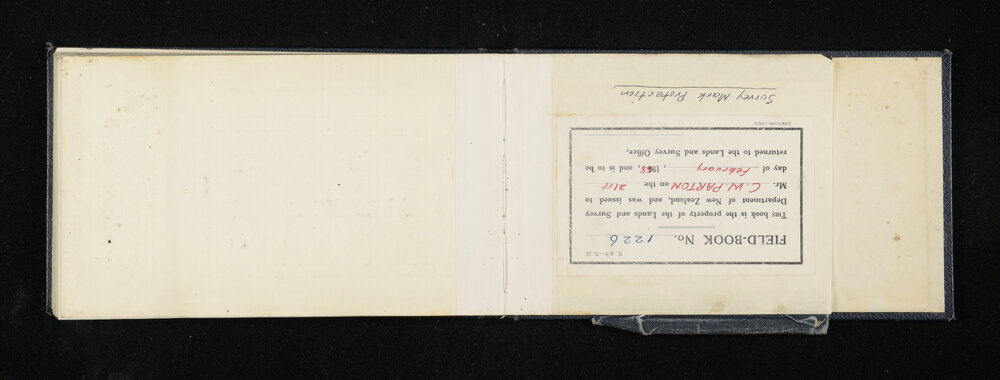 L. & S.—N. 24.
FIELD-BOOK No. 1226
This book is the property of the Lands and Survey
Department of New Zealand, and was issued to
Mr. C. W. PARTON on the 21st
day of February, 1968, and is to be
returned to the Lands and Survey Office,
Survey Mark Protection